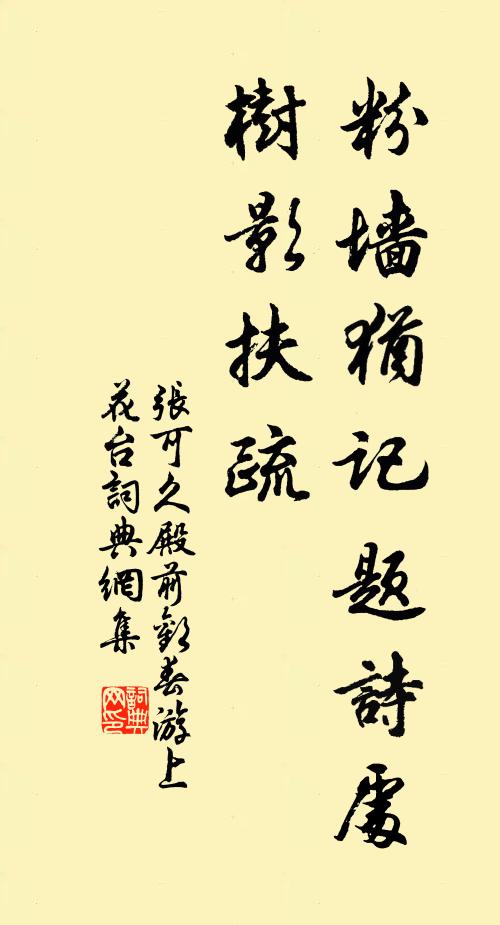 粉墙猶记题詩處
樹影扶疏
張可久殿前歡春游上
花台詞典網集
詞典
网印